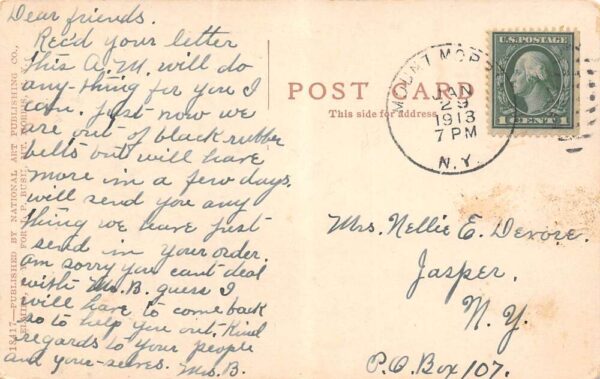 Dear friends.
Rec'd your letter
this A.M. will do
any-thing for you I
can. Just now we
are out of black rubber
belts but will have
more in a few days.
will send you any
thing we have just
send in your order.
am sorry you can't deal
with Mr. B. guess I
will have to come back
so to help you out. Kind
regards to your people
and your-selves. Mrs. B.
POST CARD
This side for address.
MOUNT MOR
JAN
29
1913
7 PM
N.Y.
U.S. POSTAGE
1 CENT 1
Mrs. Nellie E. Devore.
Jasper.
N.Y.
P.O. Box 107.
18417—PUBLISHED BY NATIONAL ART PUBLISHING CO.,
FOR P. BUSH,